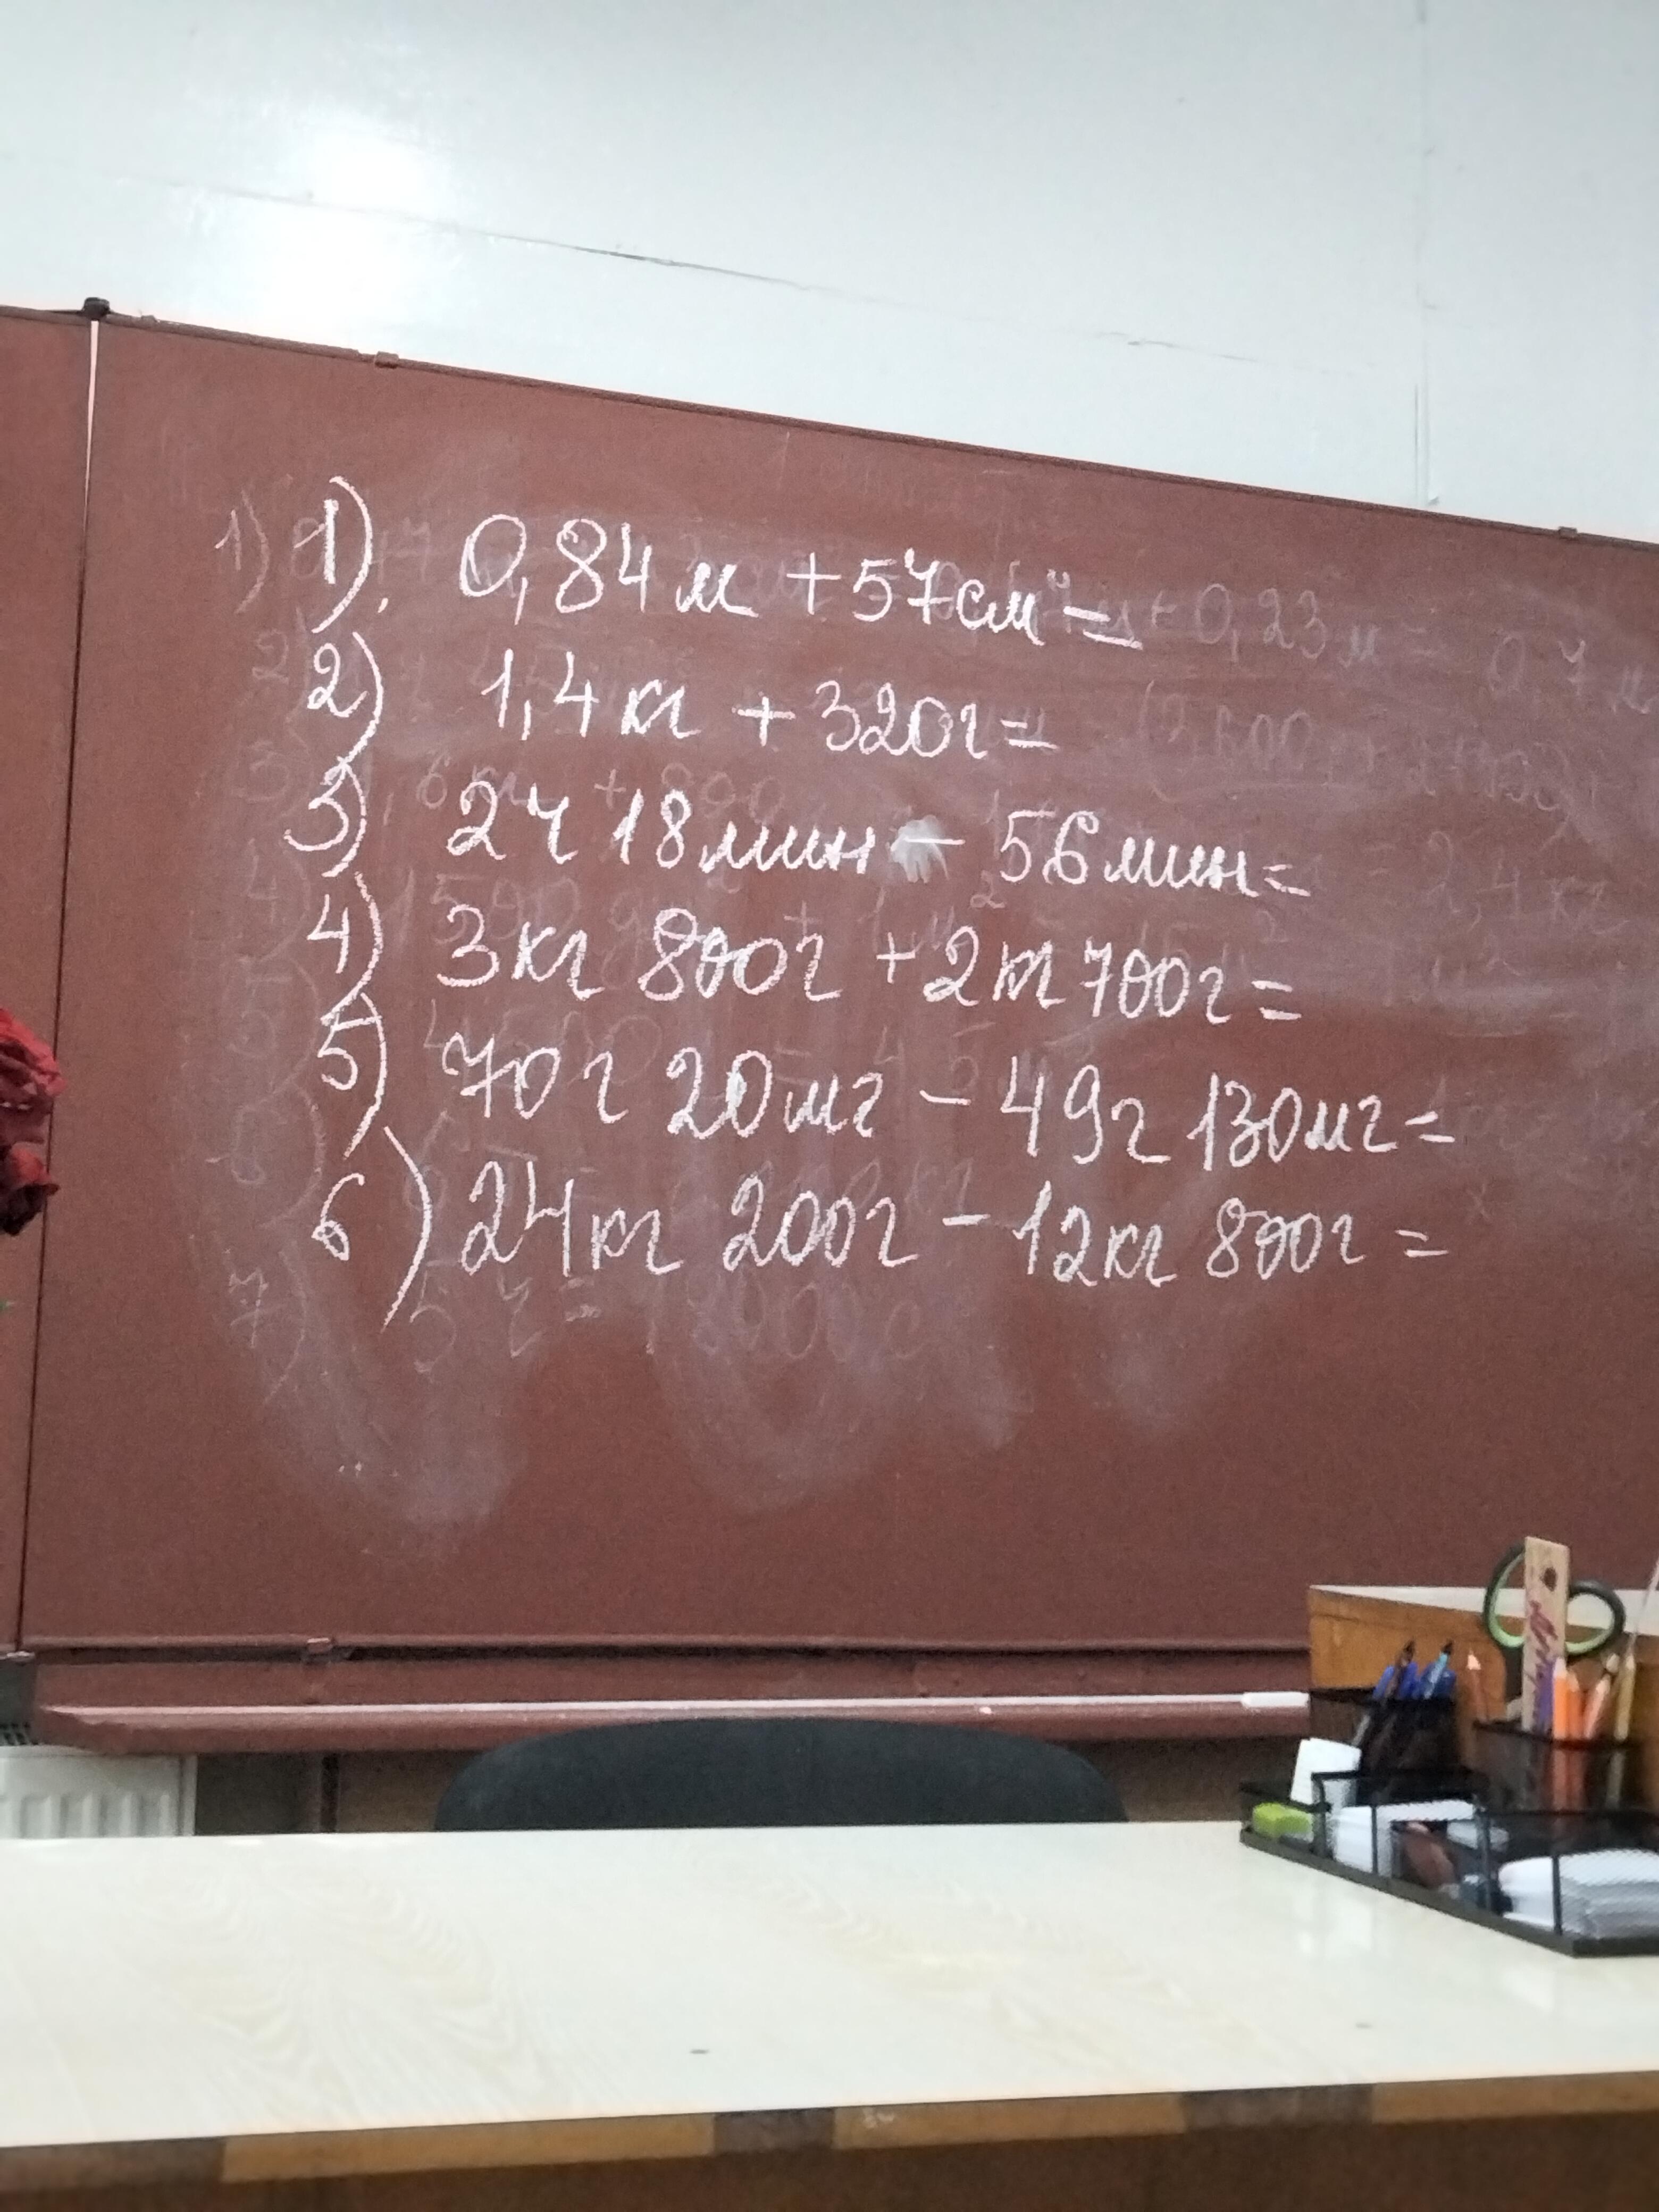 1). 0,84м + 57см =
2) 1,4кг + 320г =
3) 2ч 18мин - 56мин =
4) 3кг 800г + 2кг 700г =
5) 70г 20мг - 49г 130мг =
6) 24кг 200г - 12кг 800г =